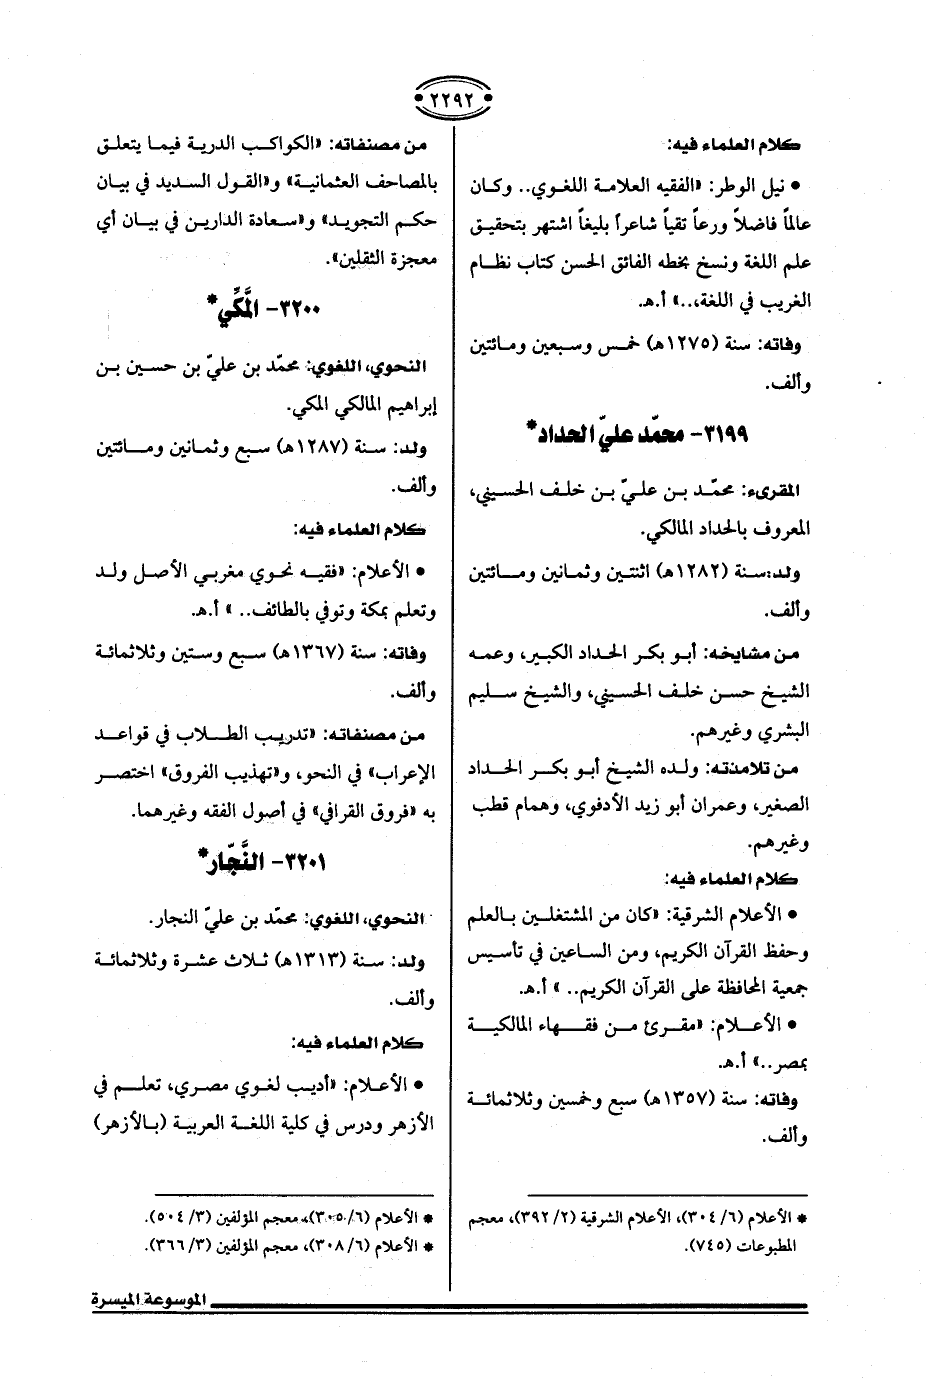 ٢٢٩٢
كلام العلماء فيه:
• نيل الوطر: «الفقيه العلامة اللغوي.. وكان
عالماً فاضلاً ورعاً تقياً شاعراً بليغاً اشتهر بتحقيق
علم اللغة ونسخ بخطه الفائق الحسن كتاب نظام
الغريب في اللغة،..» أ.هـ.
وفاته: سنة (١٢٧٥هـ) خمس وسبعين ومائتين
وألف.
٣١٩٩- محمّد عليّ الحداد*
المقرىء: محمّد بن عليّ بن خلف الحسيني،
المعروف بالحداد المالكي.
ولد:سنة (١٢٨٢هـ) اثنتين وثمانين ومائتين
وألف.
من مشايخه: أبو بكر الحداد الكبير، وعمه
الشيخ حسن خلف الحسيني، والشيخ سليم
البشري وغيرهم.
من تلامذته: ولده الشيخ أبو بكر الحداد
الصغير، وعمران أبو زيد الأدفوي، وهمام قطب
وغيرهم.
كلام العلماء فيه:
• الأعلام الشرقية: «كان من المشتغلين بالعلم
وحفظ القرآن الكريم، ومن الساعين في تأسيس
جمعية المحافظة على القرآن الكريم.. » أ.هـ.
• الأعلام: «مقرئ من فقهاء المالكية
بمصر..» أ.هـ.
وفاته: سنة (١٣٥٧هـ) سبع وخمسين وثلاثمائة
وألف.
* الأعلام (٦/ ٣٠٤)، الأعلام الشرقية (٢/ ٣٩٢)، معجم
المطبوعات (٧٤٥).
من مصنفاته: «الكواكب الدرية فيما يتعلق
بالمصاحف العثمانية» و«القول السديد في بيان
حكم التجويد» و«سعادة الدارين في بيان أي
معجزة الثقلين».
٣٢٠٠- المَّكِّي*
النحوي، اللغوي: محمّد بن عليّ بن حسين بن
إبراهيم المالكي المكي.
ولد: سنة (١٢٨٧هـ) سبع وثمانين ومائتين
وألف.
كلام العلماء فيه:
• الأعلام: «فقيه نحوي مغربي الأصل ولد
وتعلم بمكة وتوفي بالطائف.. » أ.هـ.
وفاته: سنة (١٣٦٧هـ) سبع وستين وثلاثمائة
وألف.
من مصنفاته: «تدريب الطلاب في قواعد
الإعراب» في النحو، و«تهذيب الفروق» اختصر
به «فروق القرافي» في أصول الفقه وغيرهما.
٣٢٠١- النَّجّار*
النحوي، اللغوي: محمّد بن عليّ النجار.
ولد: سنة (١٣١٣هـ) ثلاث عشرة وثلاثمائة
وألف.
كلام العلماء فيه:
• الأعلام: «أديب لغوي مصري، تعلم في
الأزهر ودرس في كلية اللغة العربية (بالأزهر)
* الأعلام (٦/ ٣٠٥)، معجم المؤلفين (٣/ ٥٠٤).
* الأعلام (٦/ ٣٠٨)، معجم المؤلفين (٣/ ٣٦٦).
الموسوعة الميسرة